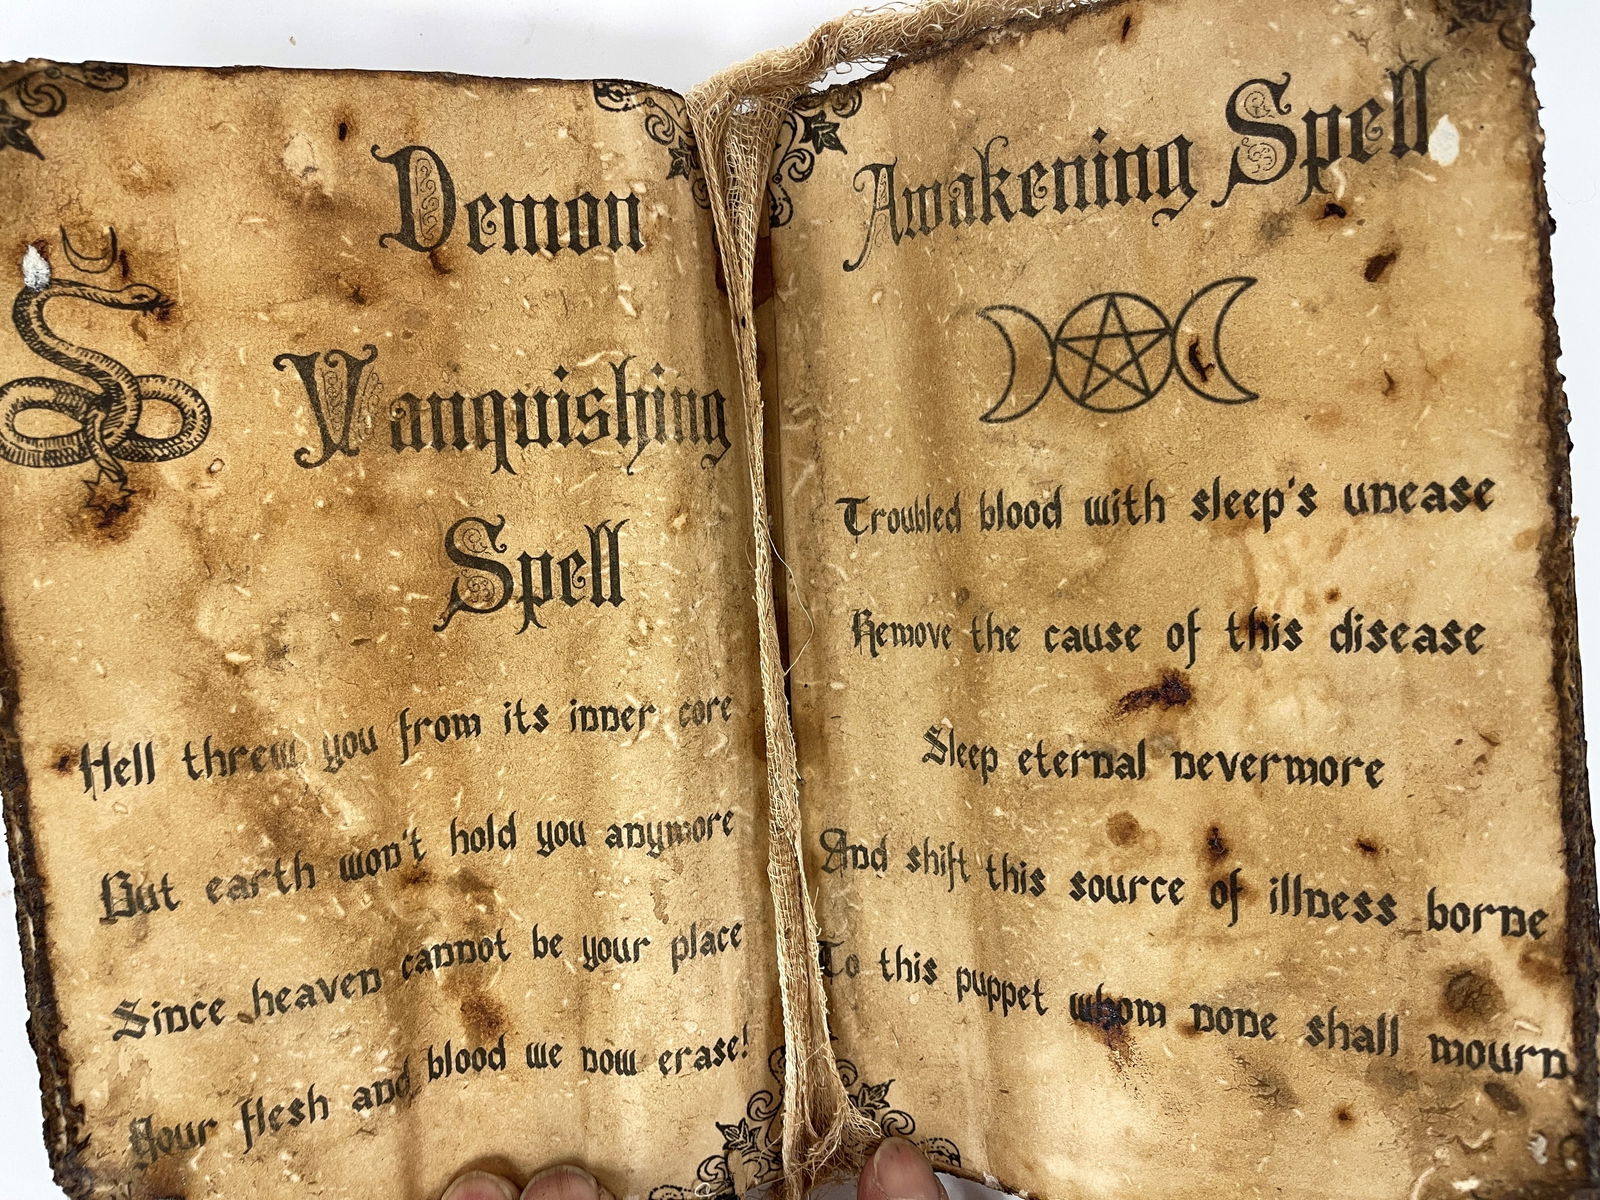 Demon
Vanquishing
Spell
Hell threw you from its inner core
But earth won't hold you anymore
Since heaven cannot be your place
Your flesh and blood we now erase!
Awakening Spell
Troubled blood with sleep's unease
Remove the cause of this disease
Sleep eternal nevermore
And shift this source of illness borne
To this puppet whom none shall mourn